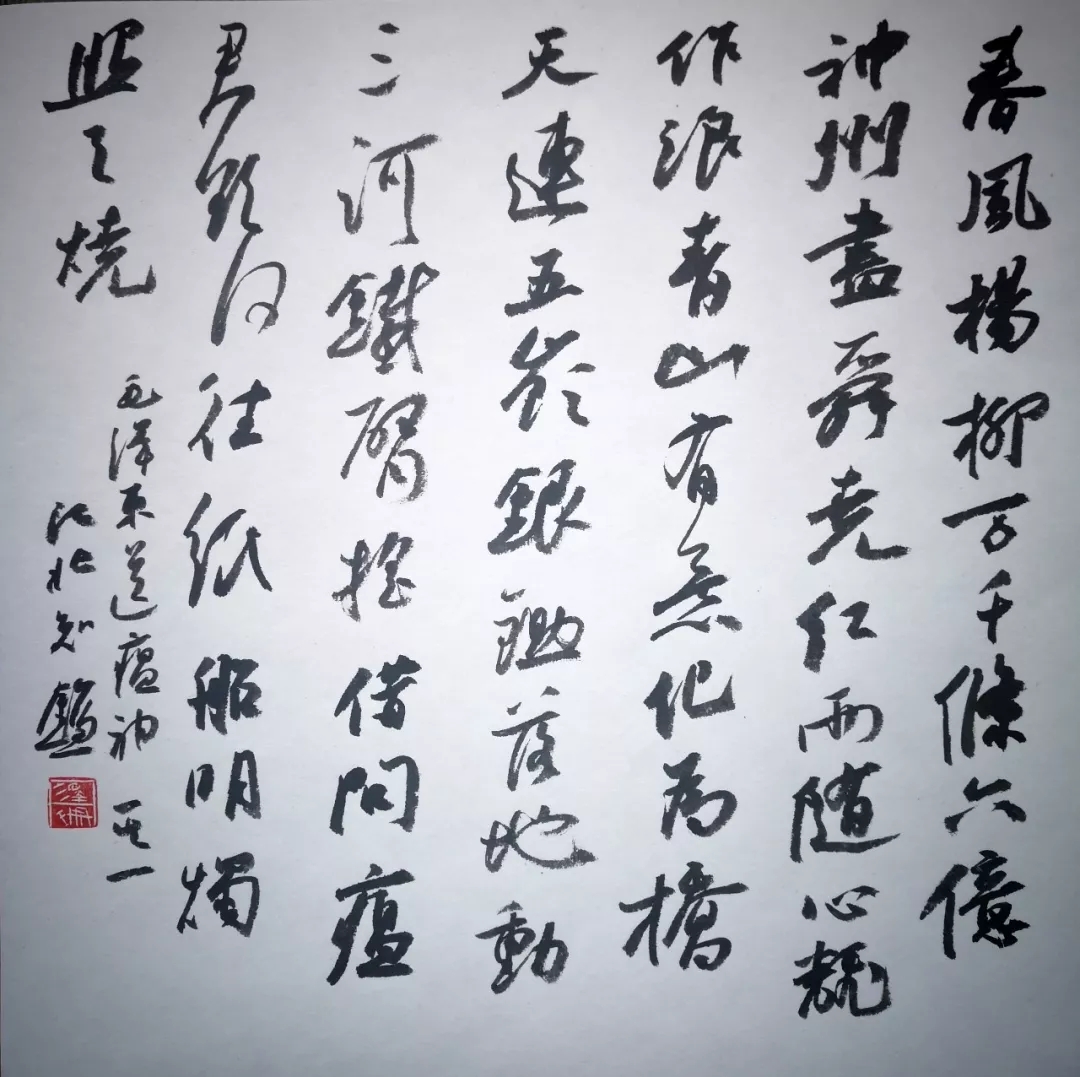 春風楊柳万千條六億
神州盡舜尭紅雨随心飜
作浪青山有意化為橋
天連五嶺銀鋤落地動
三河鐵臂摇借問瘟
君欲何往紙船明燭
照天燒
毛澤東送瘟神 其一
北知